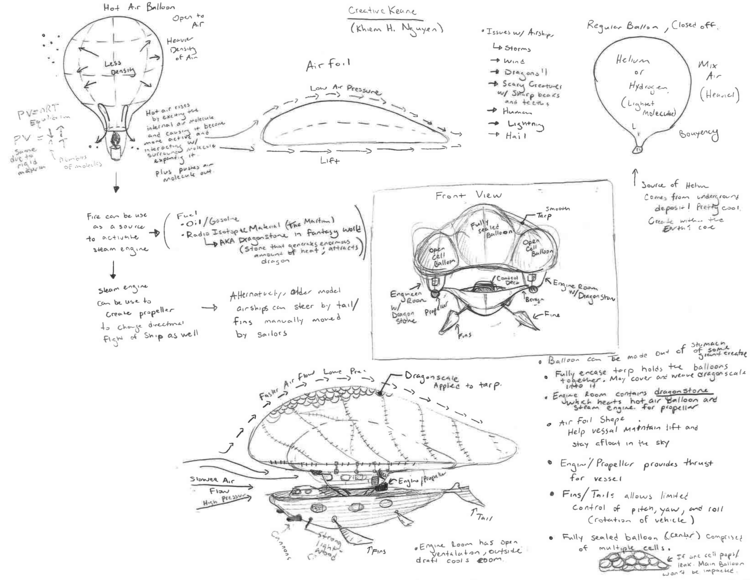 Hot Air Balloon
Open to
Air
Heavier
Density
of Air
Less
Density
PV=nRT
Equilibrium
PV = nRT
Same
due to
rigid
Number of molecules
Hot air rises
by exciting the
internal air molecule
and causing it become
more active and
interacting w/
surround molecule
expanding it.
plus pushes air
molecule out.
Creative Keane
(Khiem H. Nguyen)
Air foil
Low Air Pressure
Lift
• Issues w/ Airships
Storms
Wind
Dragons!!
Scary Creatures
w/ Sharp beaks
and teeths
Human
Lightning
Hail
Regular Balloon, Closed off.
Helium
or
Hydrogen
(Lightest
Molecule)
Mix
Air
(Heavier)
Bouyency
Source of Helium
Comes from underground
deposit! Pretty cool.
Create within the
Earth's core
Fire can be use
as a source
to activate
steam engine
Fuel
• Oil/Gasoline
• Radio Isotopes Material (The Martian)
AKA Dragonstone in Fantasy World
(Stone that generates enormous
amount of heat, attracts
dragon
Steam engine
can be use to
create propeller
to change directional
flight of ship as well
Alternatively, older model
airships can steer by tail/
fins manually moved
by sailors
Front View
Smooth
Tarp
Fully
sealed
Balloon
Open
Cell
Balloon
Open
Cell
Balloon
Control
Deck
Engineer
Room
w/ Dragon
Stone
Propeller
Engine Room
w/ Dragonstone
Fins
Fins
• Balloon can be made out of stomach
of some
grand creature
• Fully encase tarp holds the balloons
together. May cover and weave dragonscale
into it
• Engine Room contains dragonstone
which heats hot air balloon and
steam engine for propellar
• Air Foil Shape.
Help vessel maintain lift and
stay afloat in the sky
• Engine/Propeller provides thrust
for vessel
• Fins/Tails allows limited
control of pitch, yaw, and roll
(rotation of vehicle)
• Fully sealed balloon (center) comprised
of multiple cells.
If one cell pops/
leak. Main Balloon
won't be impacted.
Faster Air Flow Low Pre-
Dragonscale
Applied to tarp.
Slower Air
Flow
High Pressure
Engine/Propeller
Tail
Fins
Cannons
Strong
Lighter
Wood
• Engine Room has open
ventalation, outside
draft cools room.